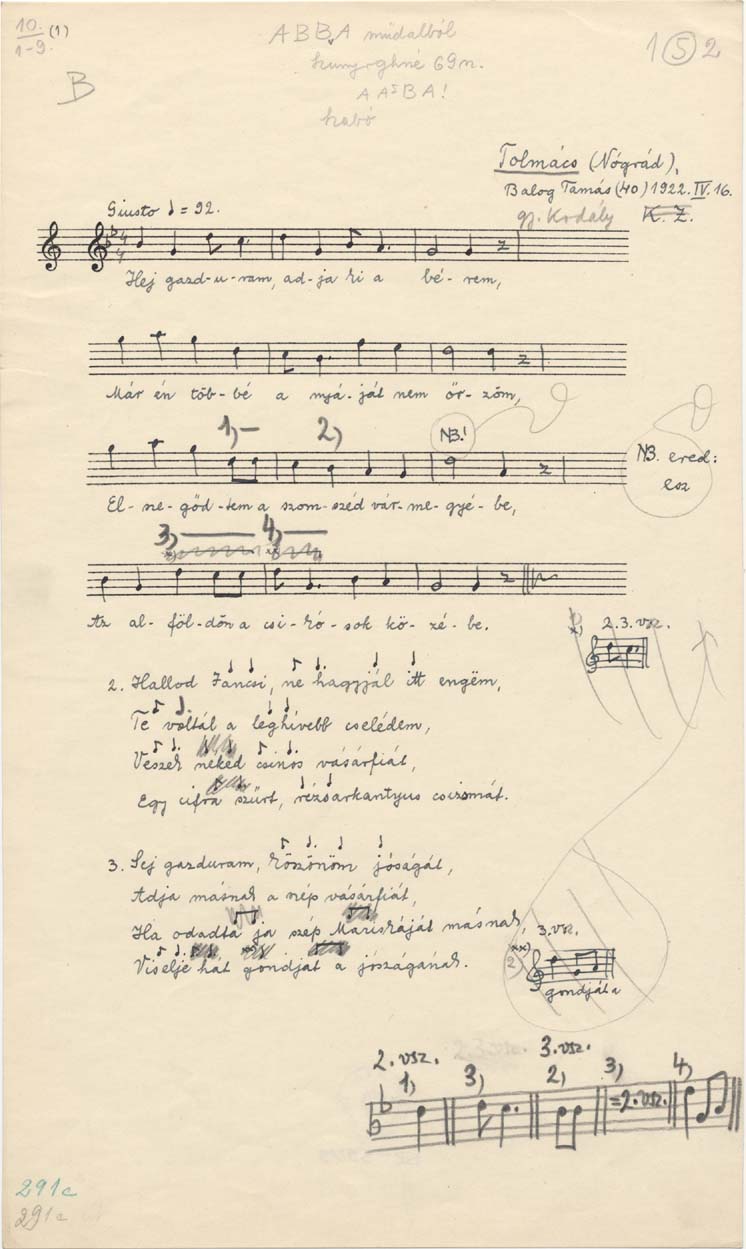 10. (1)
1-9.
ABBA műdalból
69n.
A A⁵ B A!
Szabó
1 5 2
B
Tolmács (Nógrád),
Balog Tamás (40) 1922. IV. 16.
gy. Kodály K. Z.
Giusto ♩ = 92.
4/4
Hej gazd-u-ram, ad-ja ki a bé-rem,
Már én töb-bé a nyá-ját nem őr-zöm,
1) 2) NB.!
NB. ered:
esz
El-ne-gőd-tem a szom-széd vár-me-gyé-be,
3) 4)
Az al-föl-dön a csi-kó-sok kö-zé-be.
x) 2.3. vsz.
2. Hallod Jancsi, ne hagyjál itt engëm,
Te voltál a leghívebb cselédem,
Veszek neked csinos vásárfiát,
Egy cifra szűrt, rézsarkantyus csizsmát.
3. Sej gazduram, köszönöm jóságát,
Adja másnak a szép vásárfiát,
Ha odadta ja szép Mariskáját másnak,
Viselje hát gondját a jószágának.
3. vsz.
xx)
2)
gondját a
2. vsz. 2.3 vsz. 3. vsz.
1) 3) 2) 3) 4)
=2. vsz.
291c
291c